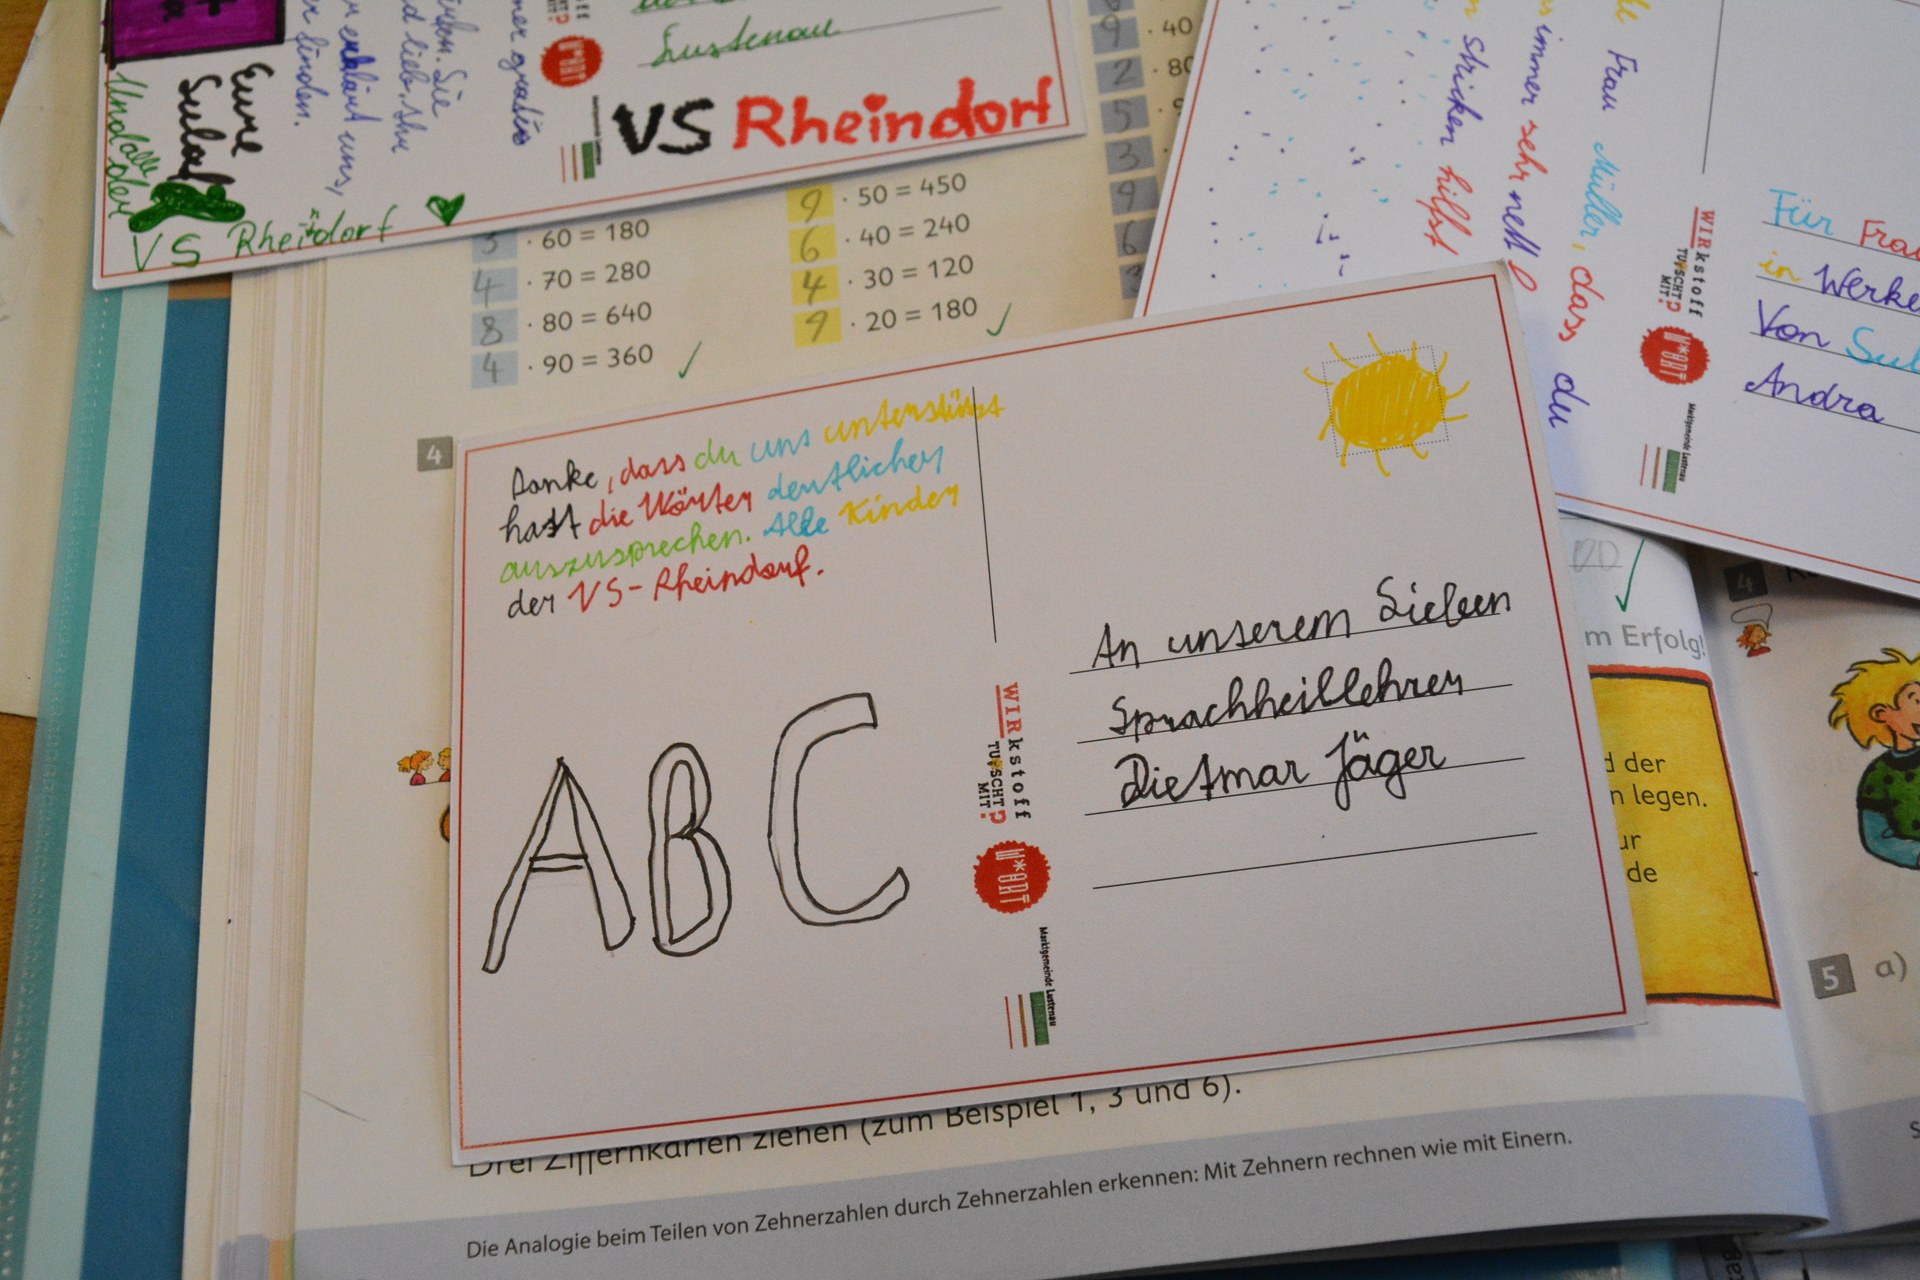 Eure
Sula
Und alle
der
VS Rheindorf
Lustenau
VS Rheindorf
uns,
finden.
und lieb,
Sie
· 60 = 180
4 · 70 = 280
8 · 80 = 640
4 · 90 = 360
9 · 50 = 450
6 · 40 = 240
4 · 30 = 120
9 · 20 = 180
9 · 40
2 · 80
5
3
9
6
Frau Müller, dass du
immer sehr nett
stricken hilfst
WIRkstoff
TUSCHT
MIT?
W*ORT
Marktgemeinde Lustenau
Für Frau
in Werke
Von Sul
Andra
4
Danke, dass du uns unterstüzt
hast die Wörter deutlicher
auszusprechen. Alle Kinder
der VS-Rheindorf.
ABC
WIRkstoff
TUSCHT
MIT?
W*ORT
Marktgemeinde Lustenau
An unserem Lieben
Sprachheillehrer
Dietmar Jäger
m Erfolg!
d der
n legen.
ur
de
4
5 a)
Drei Ziffernkarten ziehen (zum Beispiel 1, 3 und 6).
Die Analogie beim Teilen von Zehnerzahlen durch Zehnerzahlen erkennen: Mit Zehnern rechnen wie mit Einern.